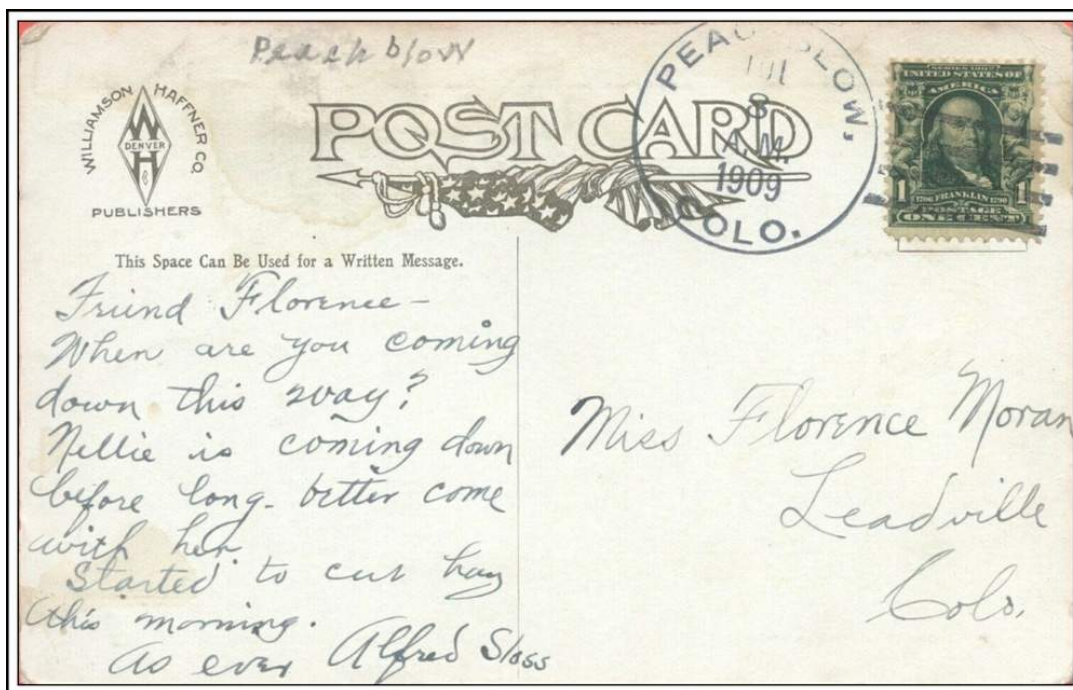 Peach blow
WILLIAMSON HAFFNER CO.
W
DENVER
H
PUBLISHERS
POST CARD
PEACHBLOW,
JUL
8
A.M.
1909
COLO.
SERIES 1902
UNITED STATES OF
AMERICA
1 1
1706 FRANKLIN 1790
POSTAGE
ONE CENT
This Space Can Be Used for a Written Message.
Friend Florence -
When are you coming
down this way?
Nellie is coming down
before long - better come
with her.
Started to cut hay
this morning.
As ever Alfred Sloss
Miss Florence Moran
Leadville
Colo.